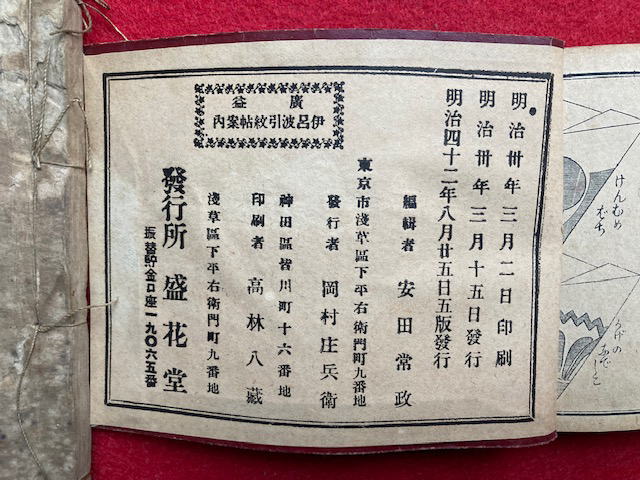 明治卅年三月二日印刷
明治卅年三月十五日發行
明治四十二年八月廿五日五版發行
編輯者　安田常政
東京市淺草區下平右衛門町九番地
發行者　岡村庄兵衛
神田區皆川町十六番地
印刷者　高林八藏
淺草區下平右衛門町九番地
發行所　盛花堂
振替貯金口座一九〇六五番
廣益
伊呂波引紋帖案内
けんむめ